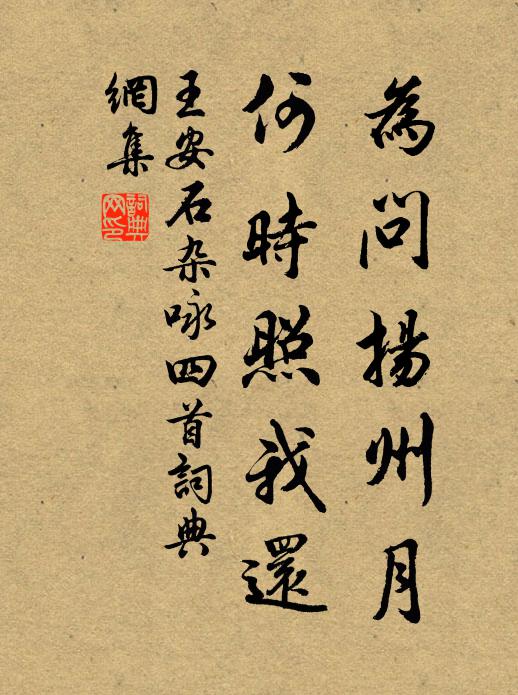 為問揚州月
何時照我還
王安石杂咏四首詞典
網集
詞典網印